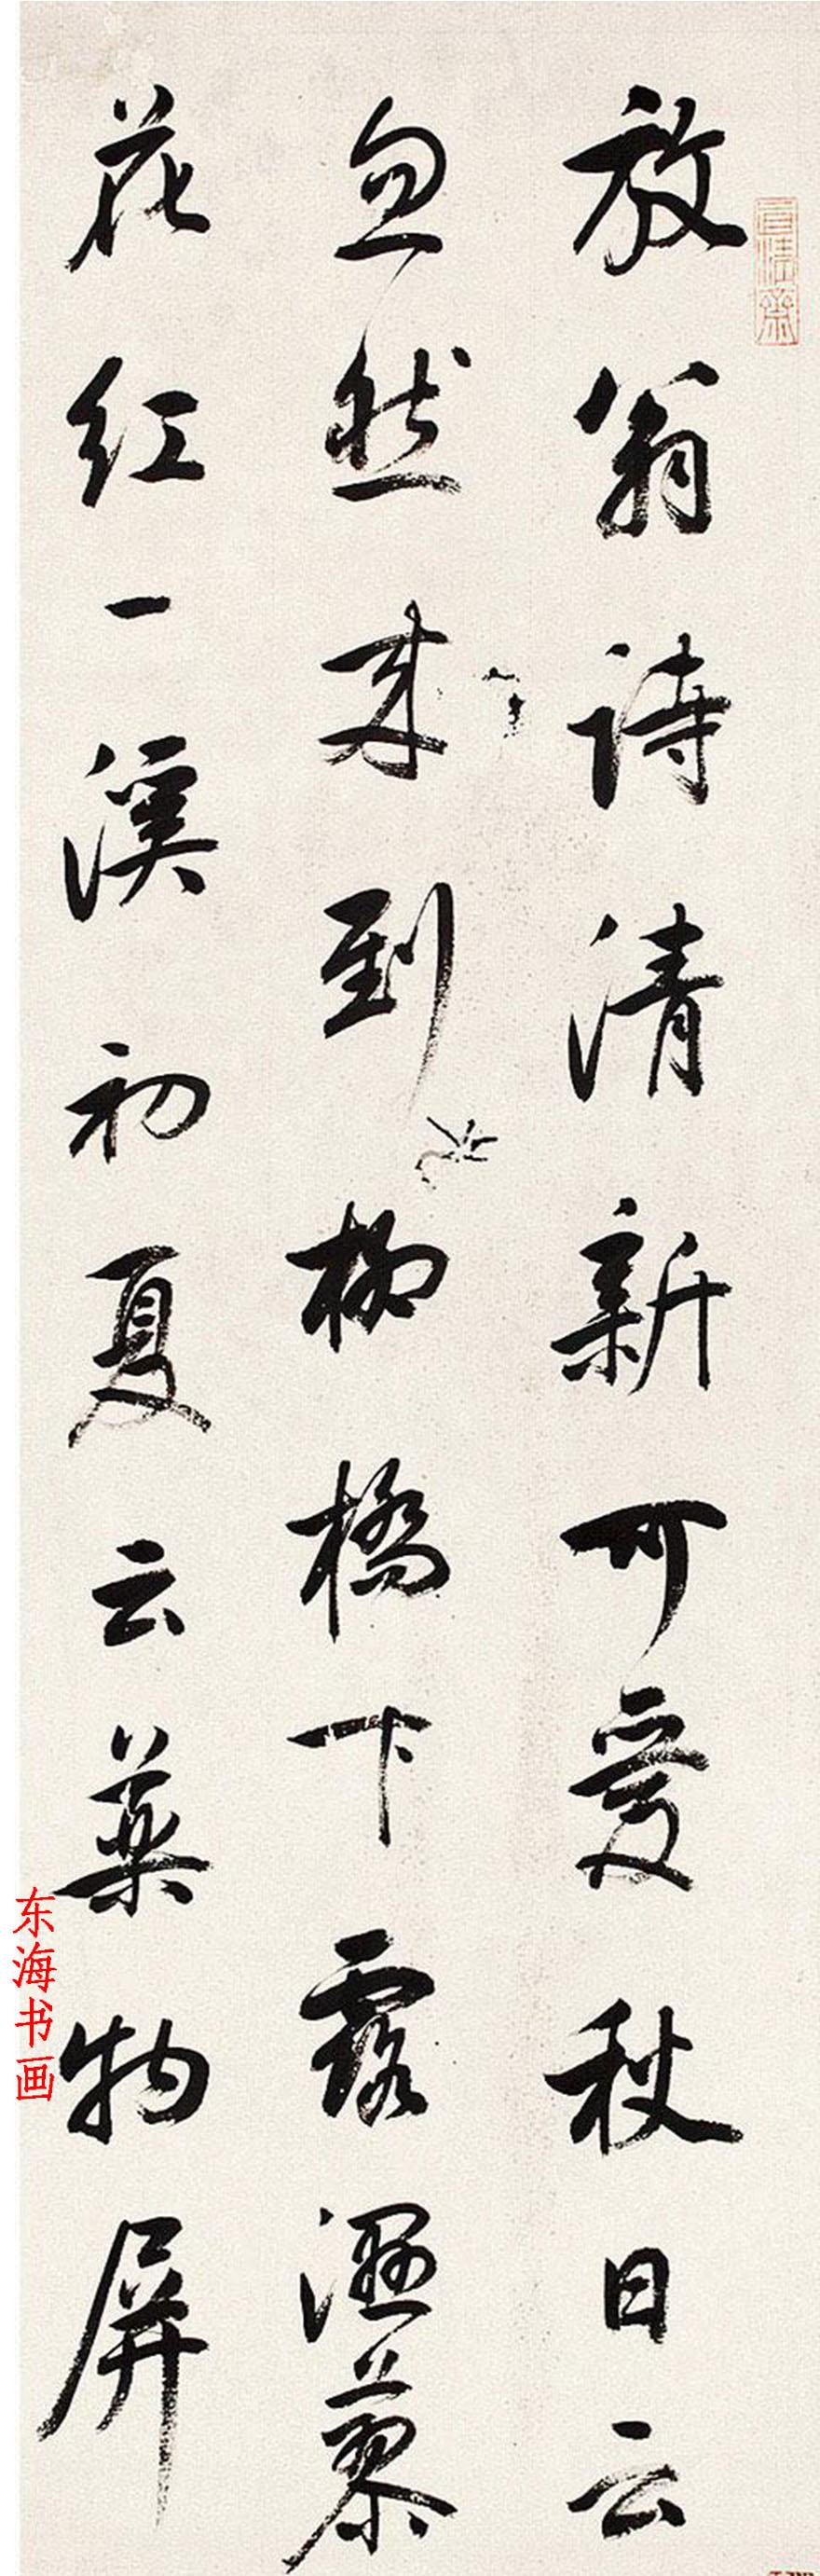 放翁詩清新可愛秋日云
忽然來到柳橋下露濕蓼
花紅一溪初夏云藥物屏
东海书画